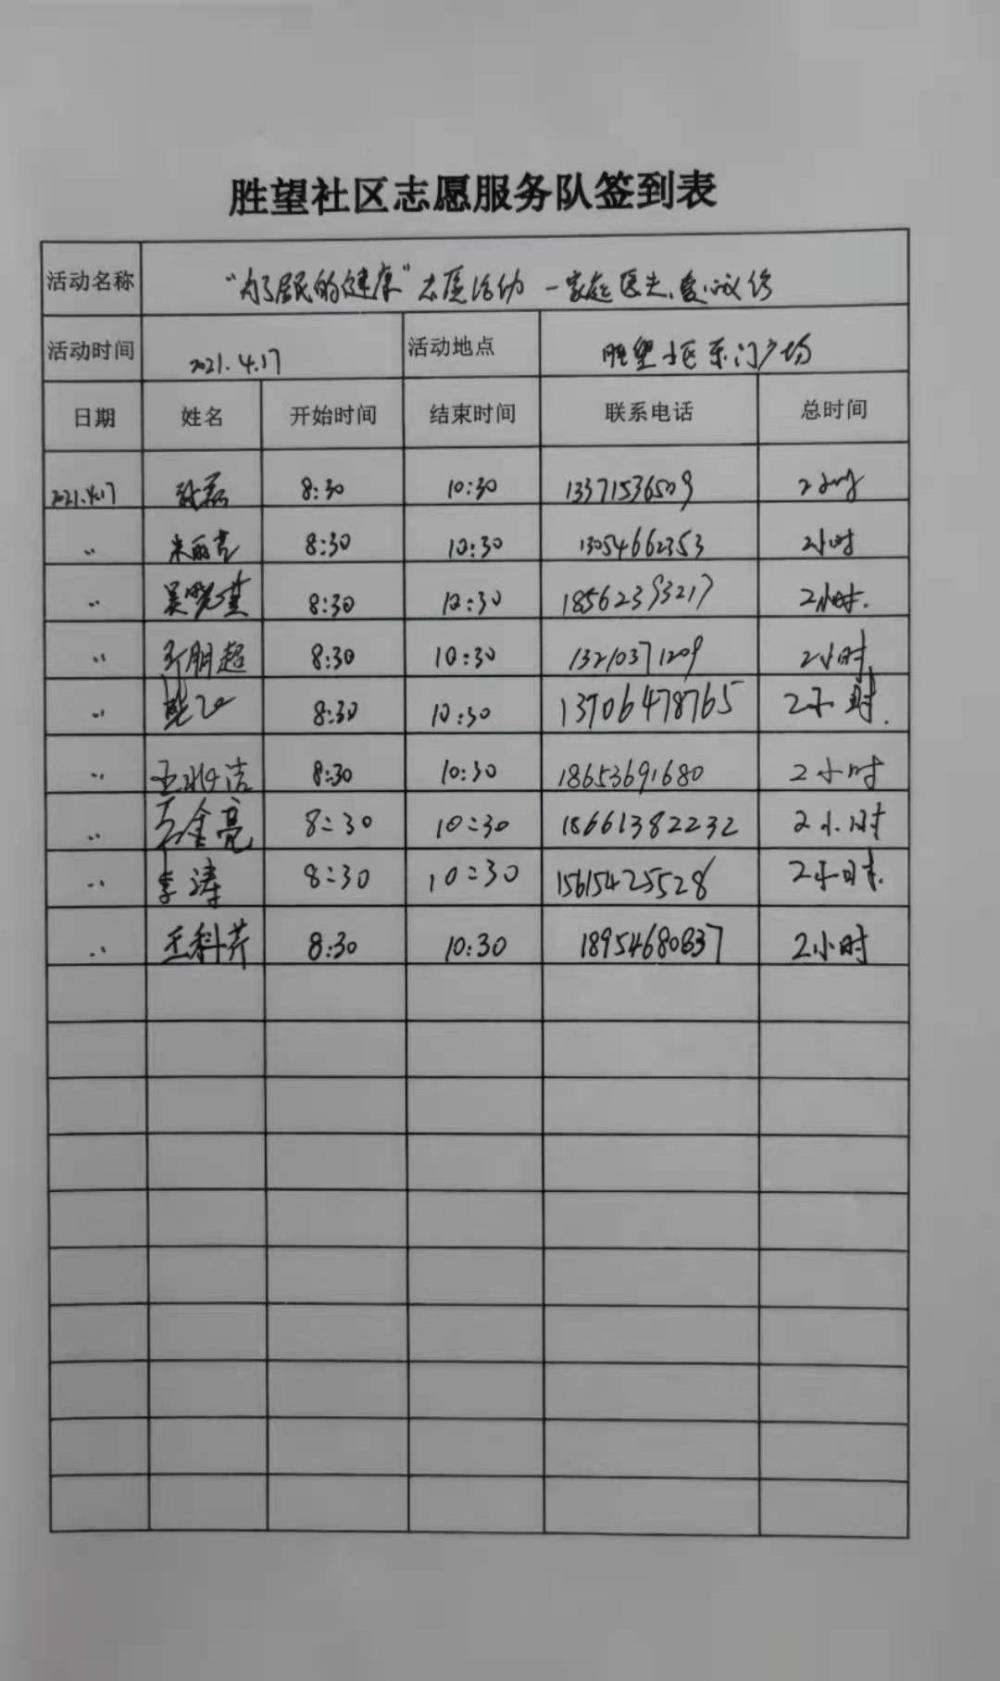 胜望社区志愿服务队签到表
活动名称 "为了居民的健康"志愿活动 一家庭医生爱心义诊
活动时间 2021.4.17 活动地点 胜望小区东门广场
日期 姓名 开始时间 结束时间 联系电话 总时间
2021.4.17 8:30 10:30 13371536509 2小时
〃 朱丽 8:30 10:30 13054662353 2小时
〃 吴晓 8:30 10:30 18562393217 2小时.
〃 朋超 8:30 10:30 13210371209 2小时
〃 8:30 10:30 13706478765 2小时.
〃 王 洁 8:30 10:30 18653691680 2小时
〃 金亮 8:30 10:30 18661382232 2小时
〃 李涛 8:30 10:30 15615425528 2小时.
〃 王科芹 8:30 10:30 2小时